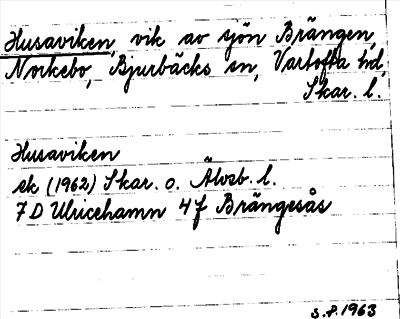 Husaviken, vik av sjön Brängen,
Norkebo, Bjurbäcks sn, Vartofta hd,
Skar. l.
Husaviken
ek (1962) Skar. o. Älvsb. l.
7D Ulricehamn 4f Brängesås
S.F. 1963